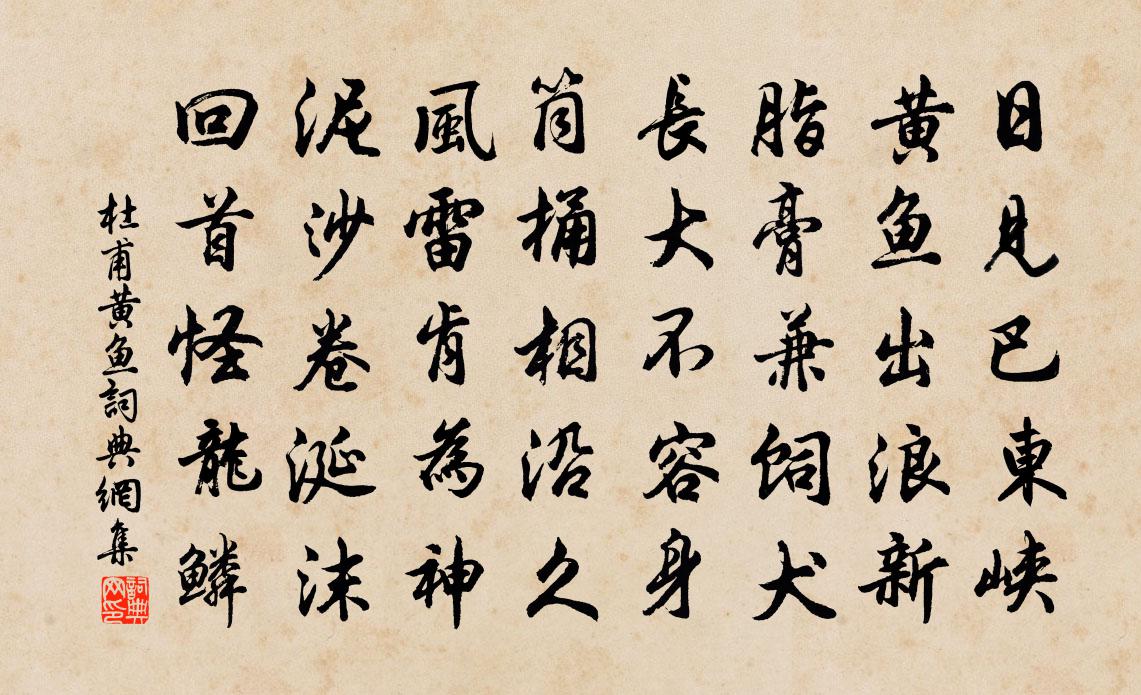 日見巴東峽
黄鱼出浪新
脂膏兼饲犬
長大不容身
筒桶相沿久
風雷肯為神
泥沙卷涎沫
回首怪龍鱗
杜甫黄鱼詞典網集
詞典網印